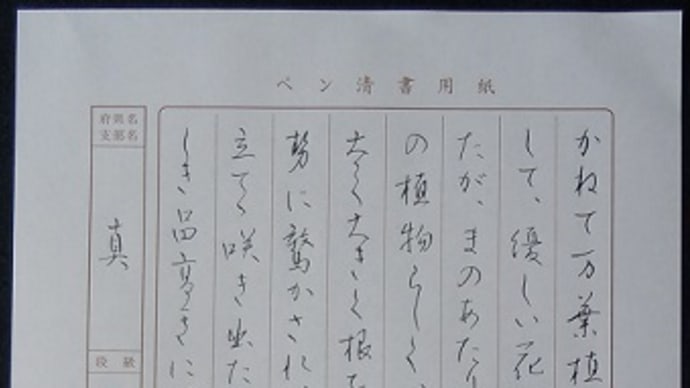 ペン清書用紙
かねて万葉植
して、優しい花
たが、まのあたり
の植物らしく、
太く大きく根を
勢に驚かされ、
立てゝ咲き出た
しき品高きに
府県名
支部名
真
段級